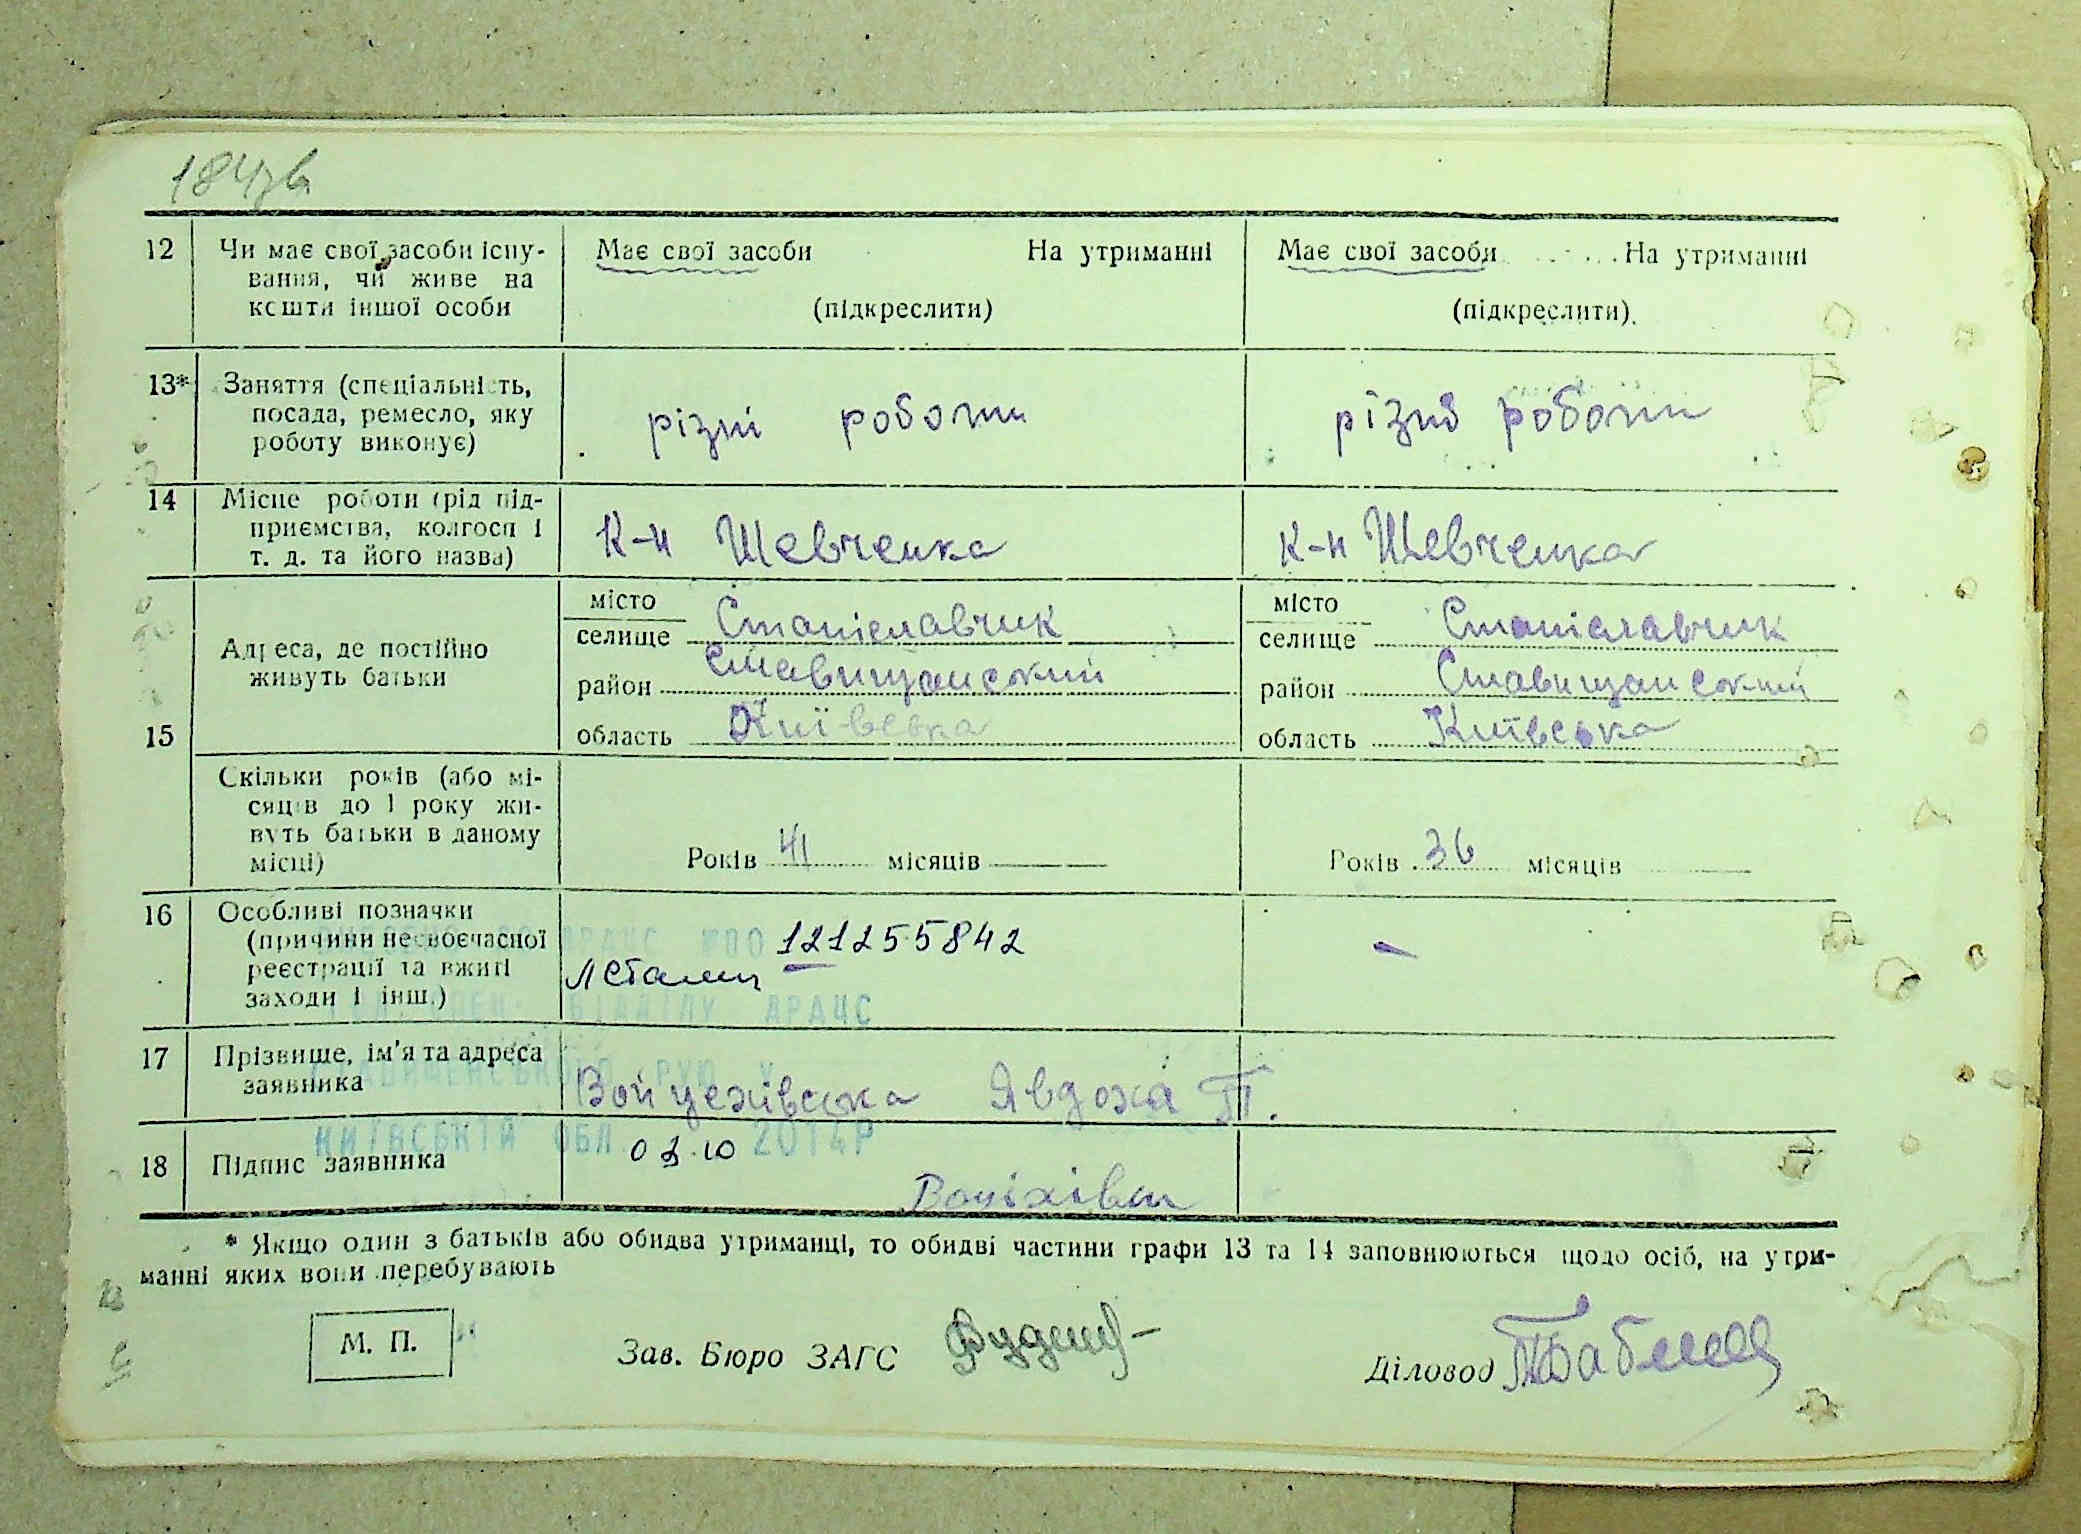 184зв
12 Чи має свої засоби існу- Має свої засоби На утриманні Має свої засоби На утриманні
вання, чи живе на
кошти іншої особи (підкреслити) (підкреслити)
13* Заняття (спеціальність,
посада, ремесло, яку різні роботи різні роботи
роботу виконує)
14 Місце роботи (рід під-
приємства, колгосп і К-п Шевченка К-п Шевченка
т. д. та його назва)
місто місто
селище Станіславчик селище Станіславчик
Адреса, де постійно
живуть батьки район Ставищанський район Ставищанський
15 область Київська область Київська
Скільки років (або мі-
сяців до 1 року жи-
вуть батьки в даному
місці) Років 41 місяців Років 36 місяців
16 Особливі позначки
(причини несвоєчасної АРАЦС 121255842 –
реєстрації та вжиті
заходи і інш.) ВІДДІЛУ АРАЦС
17 Прізвище, ім'я та адреса
заявника Войцехівська Явдоха П.
КИЇВСЬКІЙ ОБЛ 2014Р
18 Підпис заявника 03.10
* Якщо один з батьків або обидва утриманці, то обидві частини графи 13 та 14 заповнюються щодо осіб, на утри-
манні яких вони перебувають
М. П. Зав. Бюро ЗАГС Діловод